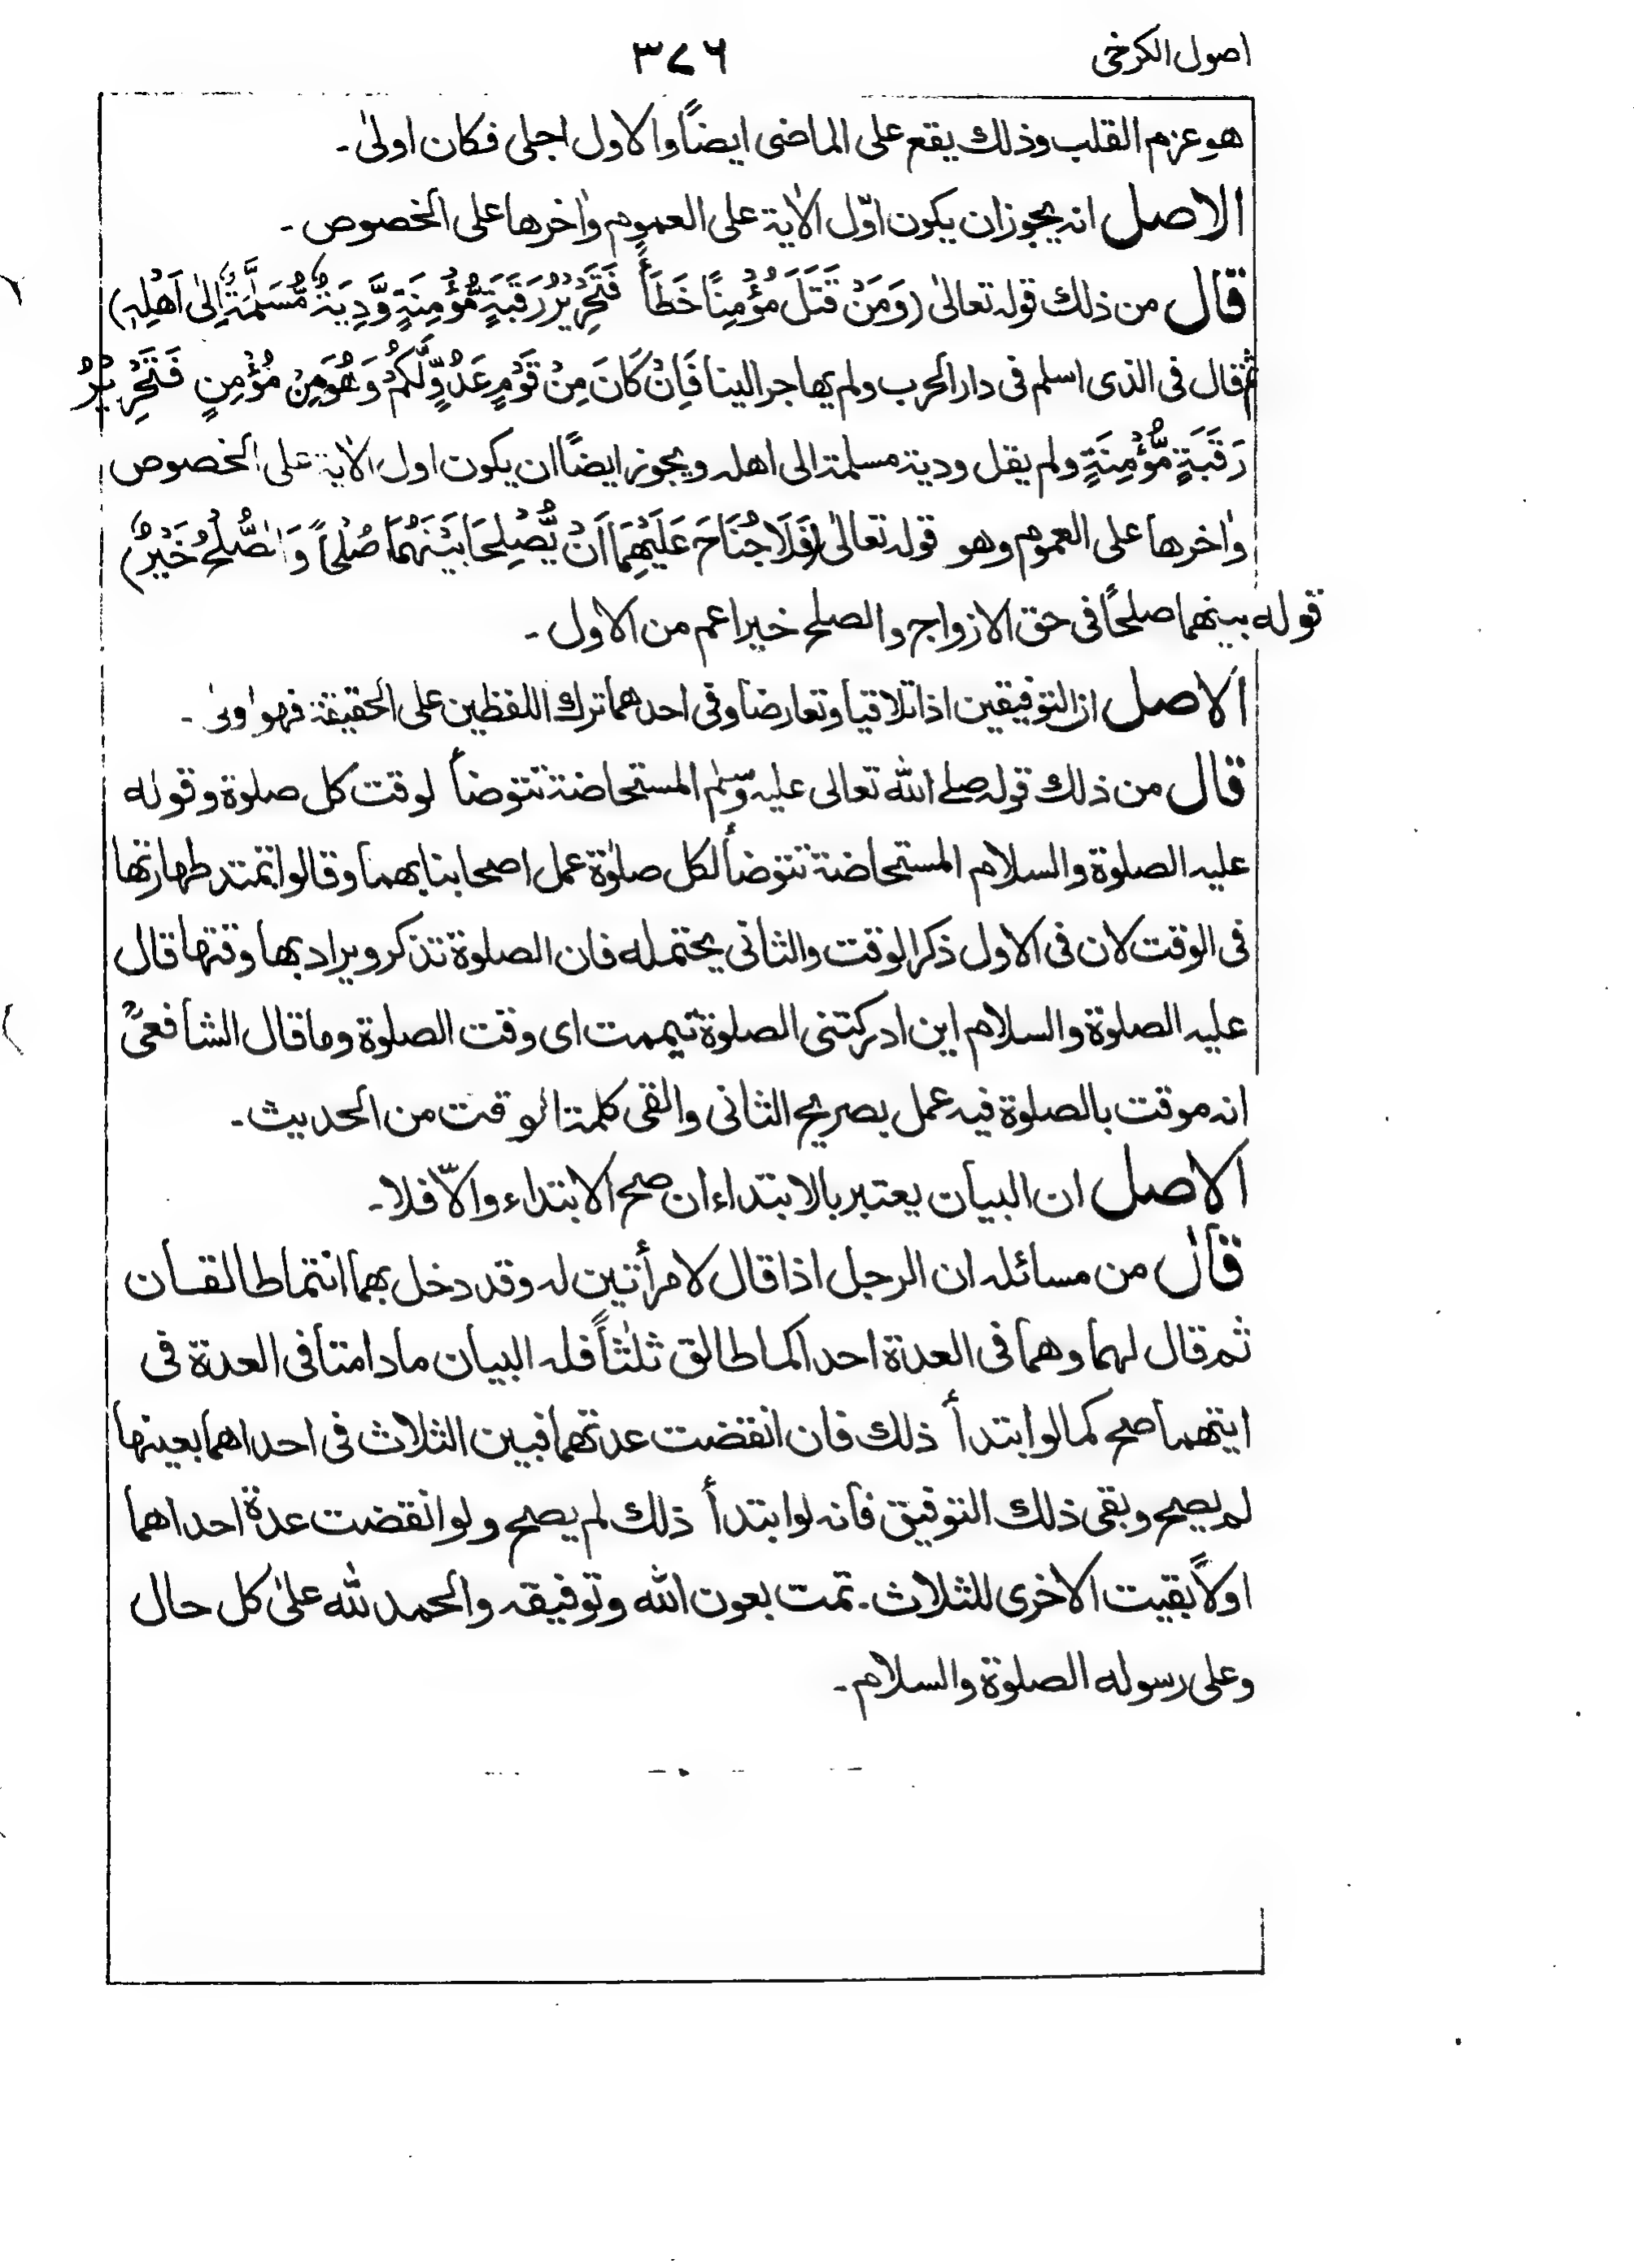 اصول الكرخى ٣٧٦
هو عزم القلب وذلك يقع على الماضى ايضاً والاول اجلى فكان اولىٰ ـ
الاصل انه يجوز ان يكون اوّل الاٰية على العموم واٰخرها على الخصوص ـ
قال من ذلك قوله تعالىٰ (وَمَنْ قَتَلَ مُؤْمِنًا خَطَأً فَتَحْرِيْرُ رَقَبَةٍ مُّؤْمِنَةٍ وَّدِيَةٌ مُّسَلَّمَةٌ اِلىٰ اَهْلِهٖ)
ثم قال فى الذى اسلم فى دار الحرب ولم يهاجر الينا فَاِنْ كَانَ مِنْ قَوْمٍ عَدُوٍّ لَّكُمْ وَهُوَ مِنْ مُؤْمِنٍ فَتَحْرِيْرُ
رَقَبَةٍ مُّؤْمِنَةٍ ولم يقل ودية مسلمة الى اهله ويجوز ايضاً ان يكون اول الاٰية على الخصوص
واٰخرها على العموم وهو قوله تعالىٰ (فَلَا جُنَاحَ عَلَيْهِمَا اَنْ يُّصْلِحَا بَيْنَهُمَا صُلْحاً وَالصُّلْحُ خَيْرٌ)
قوله بينهما صلحاً فى حق الازواج والصلح خير اعم من الاول ـ
الاصل ان التوفيقين اذا تلاقيا وتعارضا وفى احدهما ترك اللفظين على الحقيقة فهو اولىٰ ـ
قال من ذلك قوله صلے الله تعالى عليه وسلم المستحاضة تتوضأ لوقت كل صلوة وقوله
عليه الصلوة والسلام المستحاضة تتوضأ لكل صلوٰة عمل اصحابنا بهما وقالوا تمتد طهارتها
فى الوقت لان فى الاول ذكر الوقت والثانى يحتمله فان الصلوة تذكر ويراد بها وقتها قال
عليه الصلوة والسلام اين ادركتنى الصلوة تيممت اى وقت الصلوة وما قال الشافعىؒ
انه موقت بالصلوة فيه عمل بصريح الثانى والقى كلمة الوقت من الحديث ـ
الاصل ان البيان يعتبر بالابتداء ان صح الابتداء والاّ فلا ـ
قال من مسائله ان الرجل اذا قال لامرأتين له وقد دخل بهما انتما طالقان
ثم قال لهما وهما فى العدة احداكما طالق ثلٰثاً فله البيان مادامتا فى العدة فى
ايتهما صح كما لو ابتدأ ذلك فان انقضت عدتهما فبين الثلاث فى احداهما بعينها
لم يصح وبقى ذلك التوفيق فانه لو ابتدأ ذلك لم يصح ولو انقضت عدة احداهما
اولاً بقيت الاخرى للثلاث ـ تمت بعون الله وتوفيقه والحمد لله علىٰ كل حال
وعلى رسوله الصلوة والسلام ـ